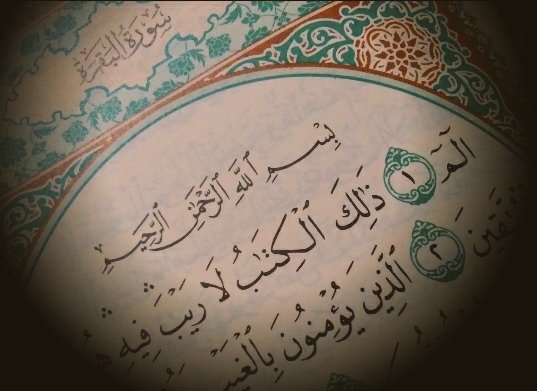 سُورَةُ البَقَرَةِ
بِسْمِ ٱللَّهِ ٱلرَّحْمَٰنِ ٱلرَّحِيمِ
الٓمٓ ١ ذَٰلِكَ ٱلْكِتَٰبُ لَا رَيْبَ ۛ فِيهِ ۛ
ٱلَّذِينَ يُؤْمِنُونَ بِٱلْغَيْبِ ٢